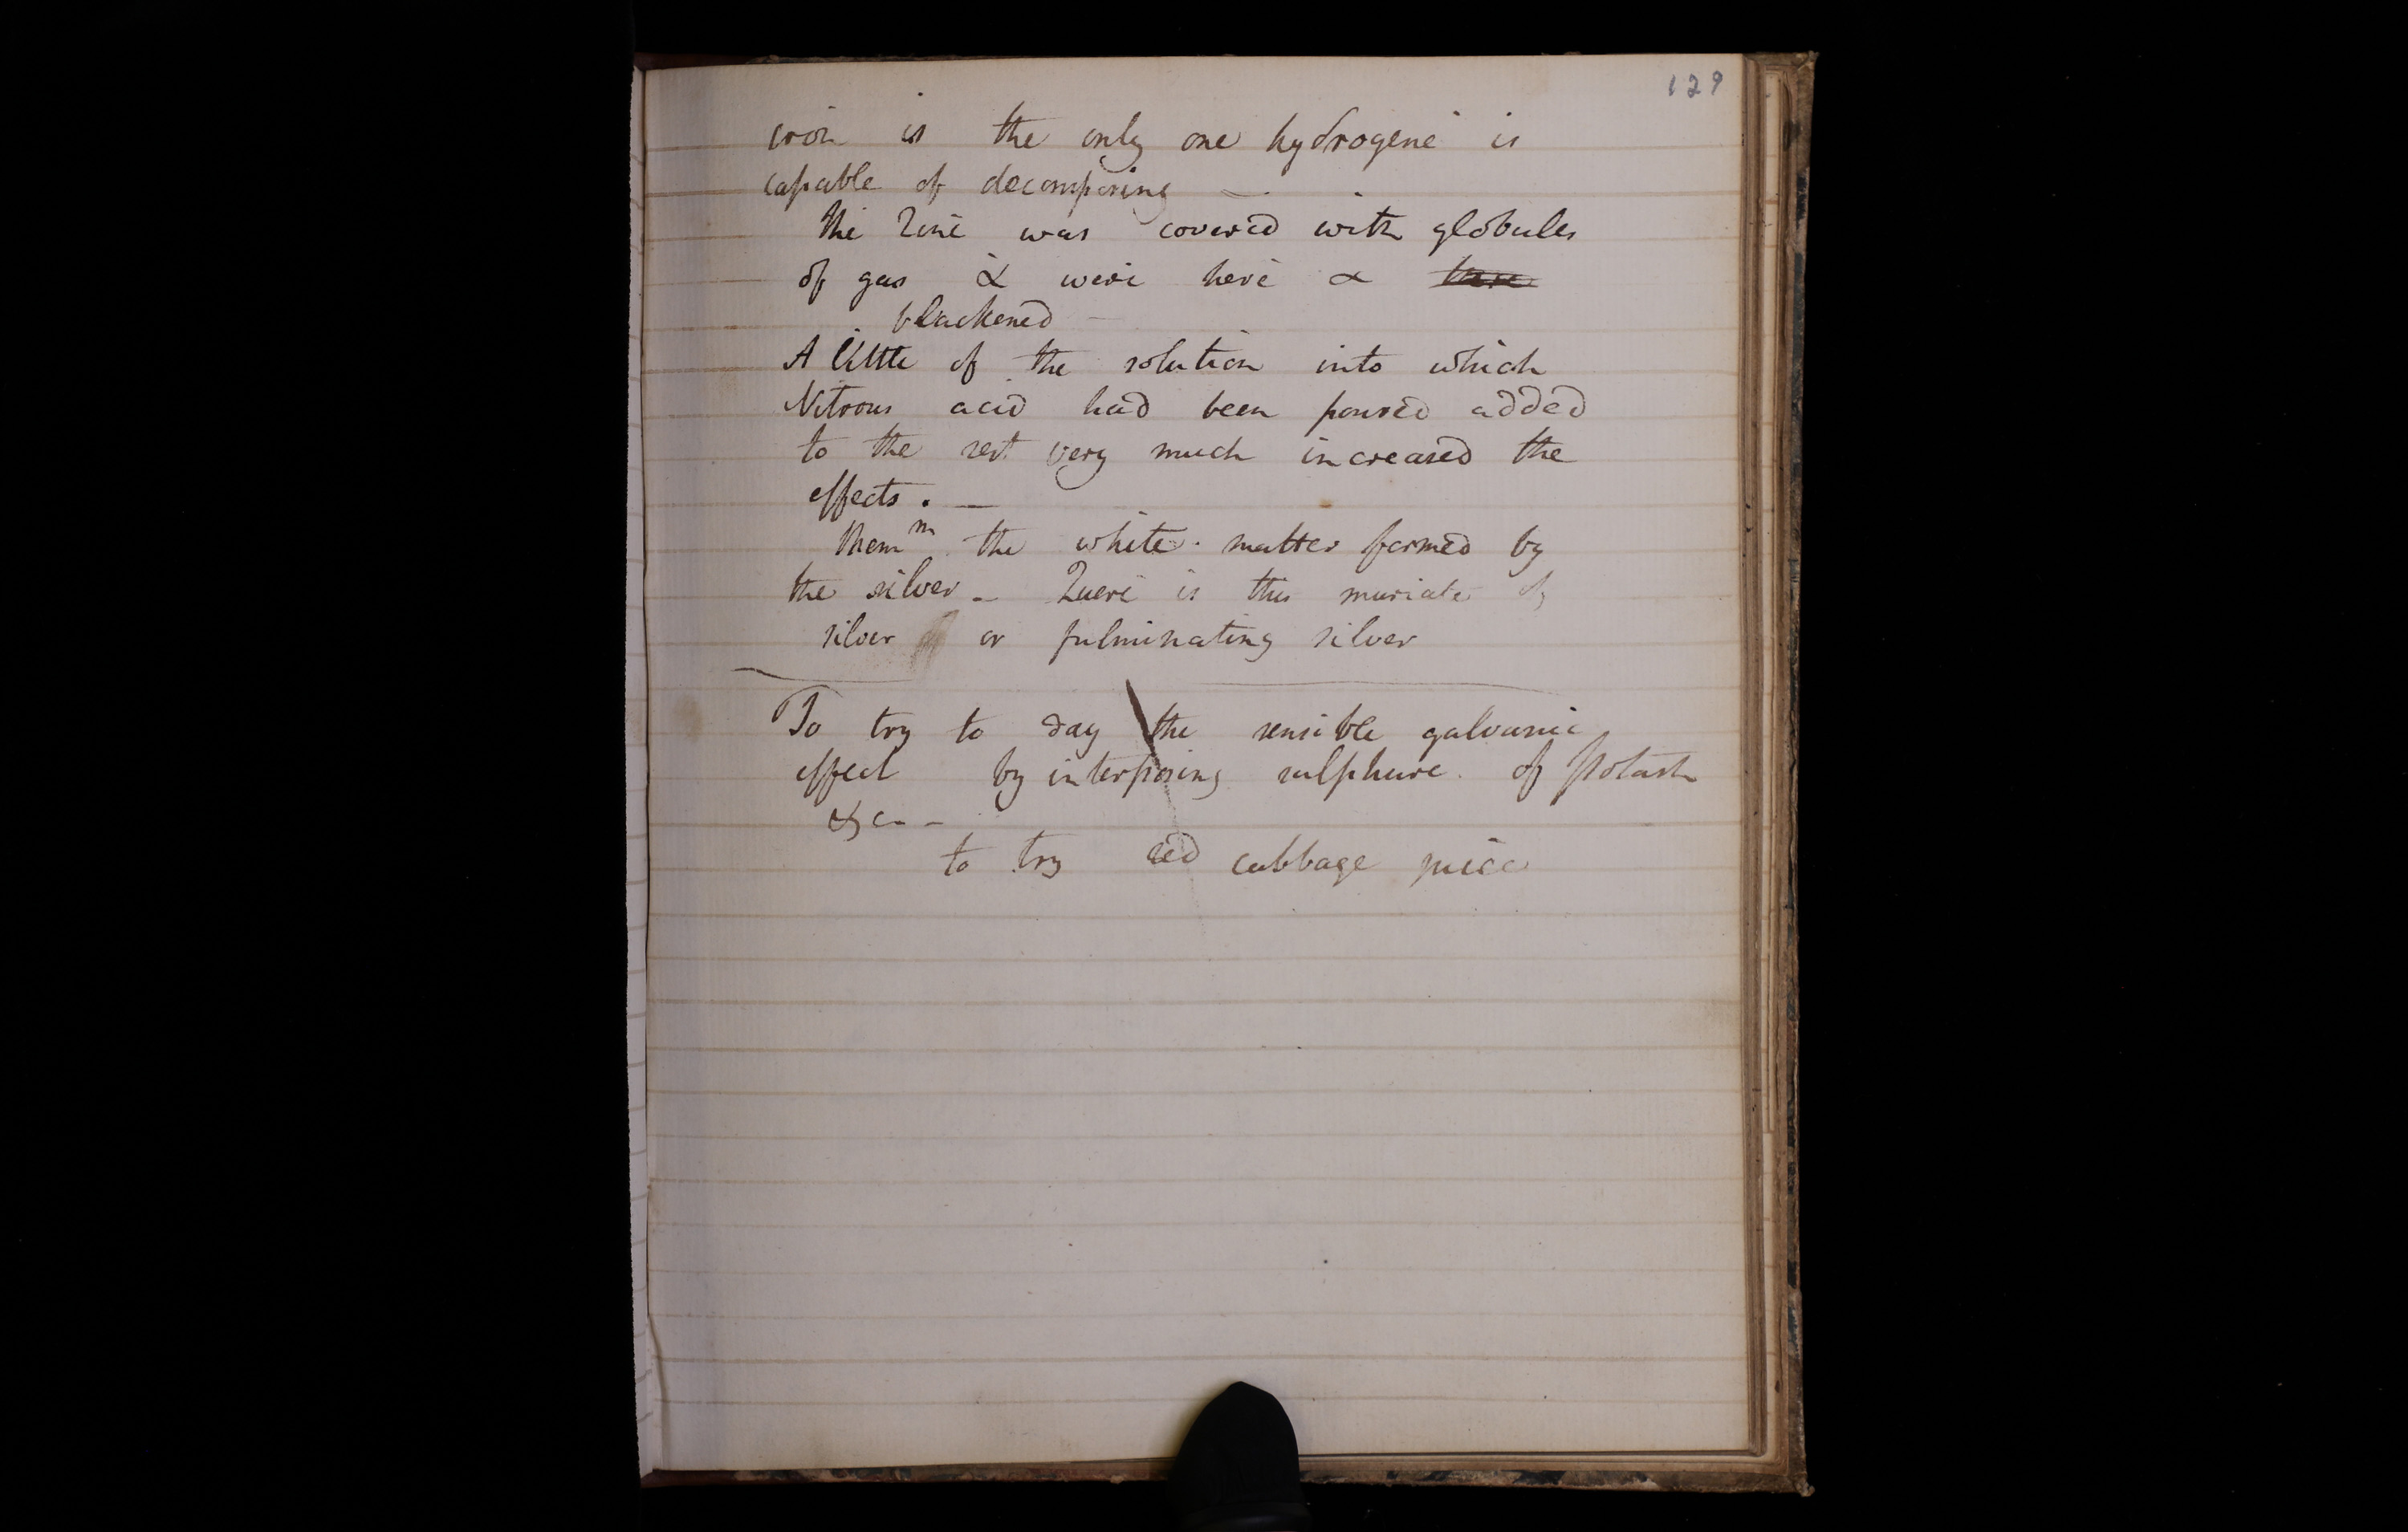 129
iron is the only one hydrogene is
capable of decomposing —
the Zinc was covered with globules
of gas & were here &
blackened —
A little of the solution into which
Nitrous acid had been poured added
to the rest very much increased the
effects. —
Mem<sup>m</sup> the white matter formed by
the silver — Quere is this muriate of
silver or fulminating silver
To try to day the sensible galvanic
effect by interposing sulphure of Potash
&c - -
to try red cabbage juice